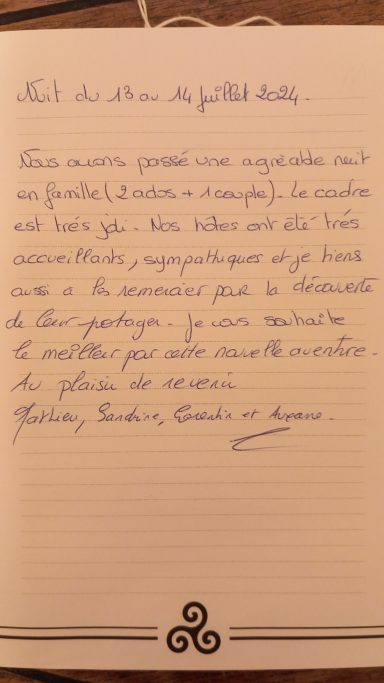 Nuit du 13 au 14 Juillet 2024.
Nous avons passé une agréable nuit
en famille (2 ados + 1 couple). Le cadre
est très joli. Nos hôtes ont été très
accueillants, sympathiques et je tiens
aussi a les remercier par la découverte
de leur potager. Je vous souhaite
le meilleur par cette nouvelle aventure.
Au plaisir de revenir
Mathieu, Sandrine, Corentin et